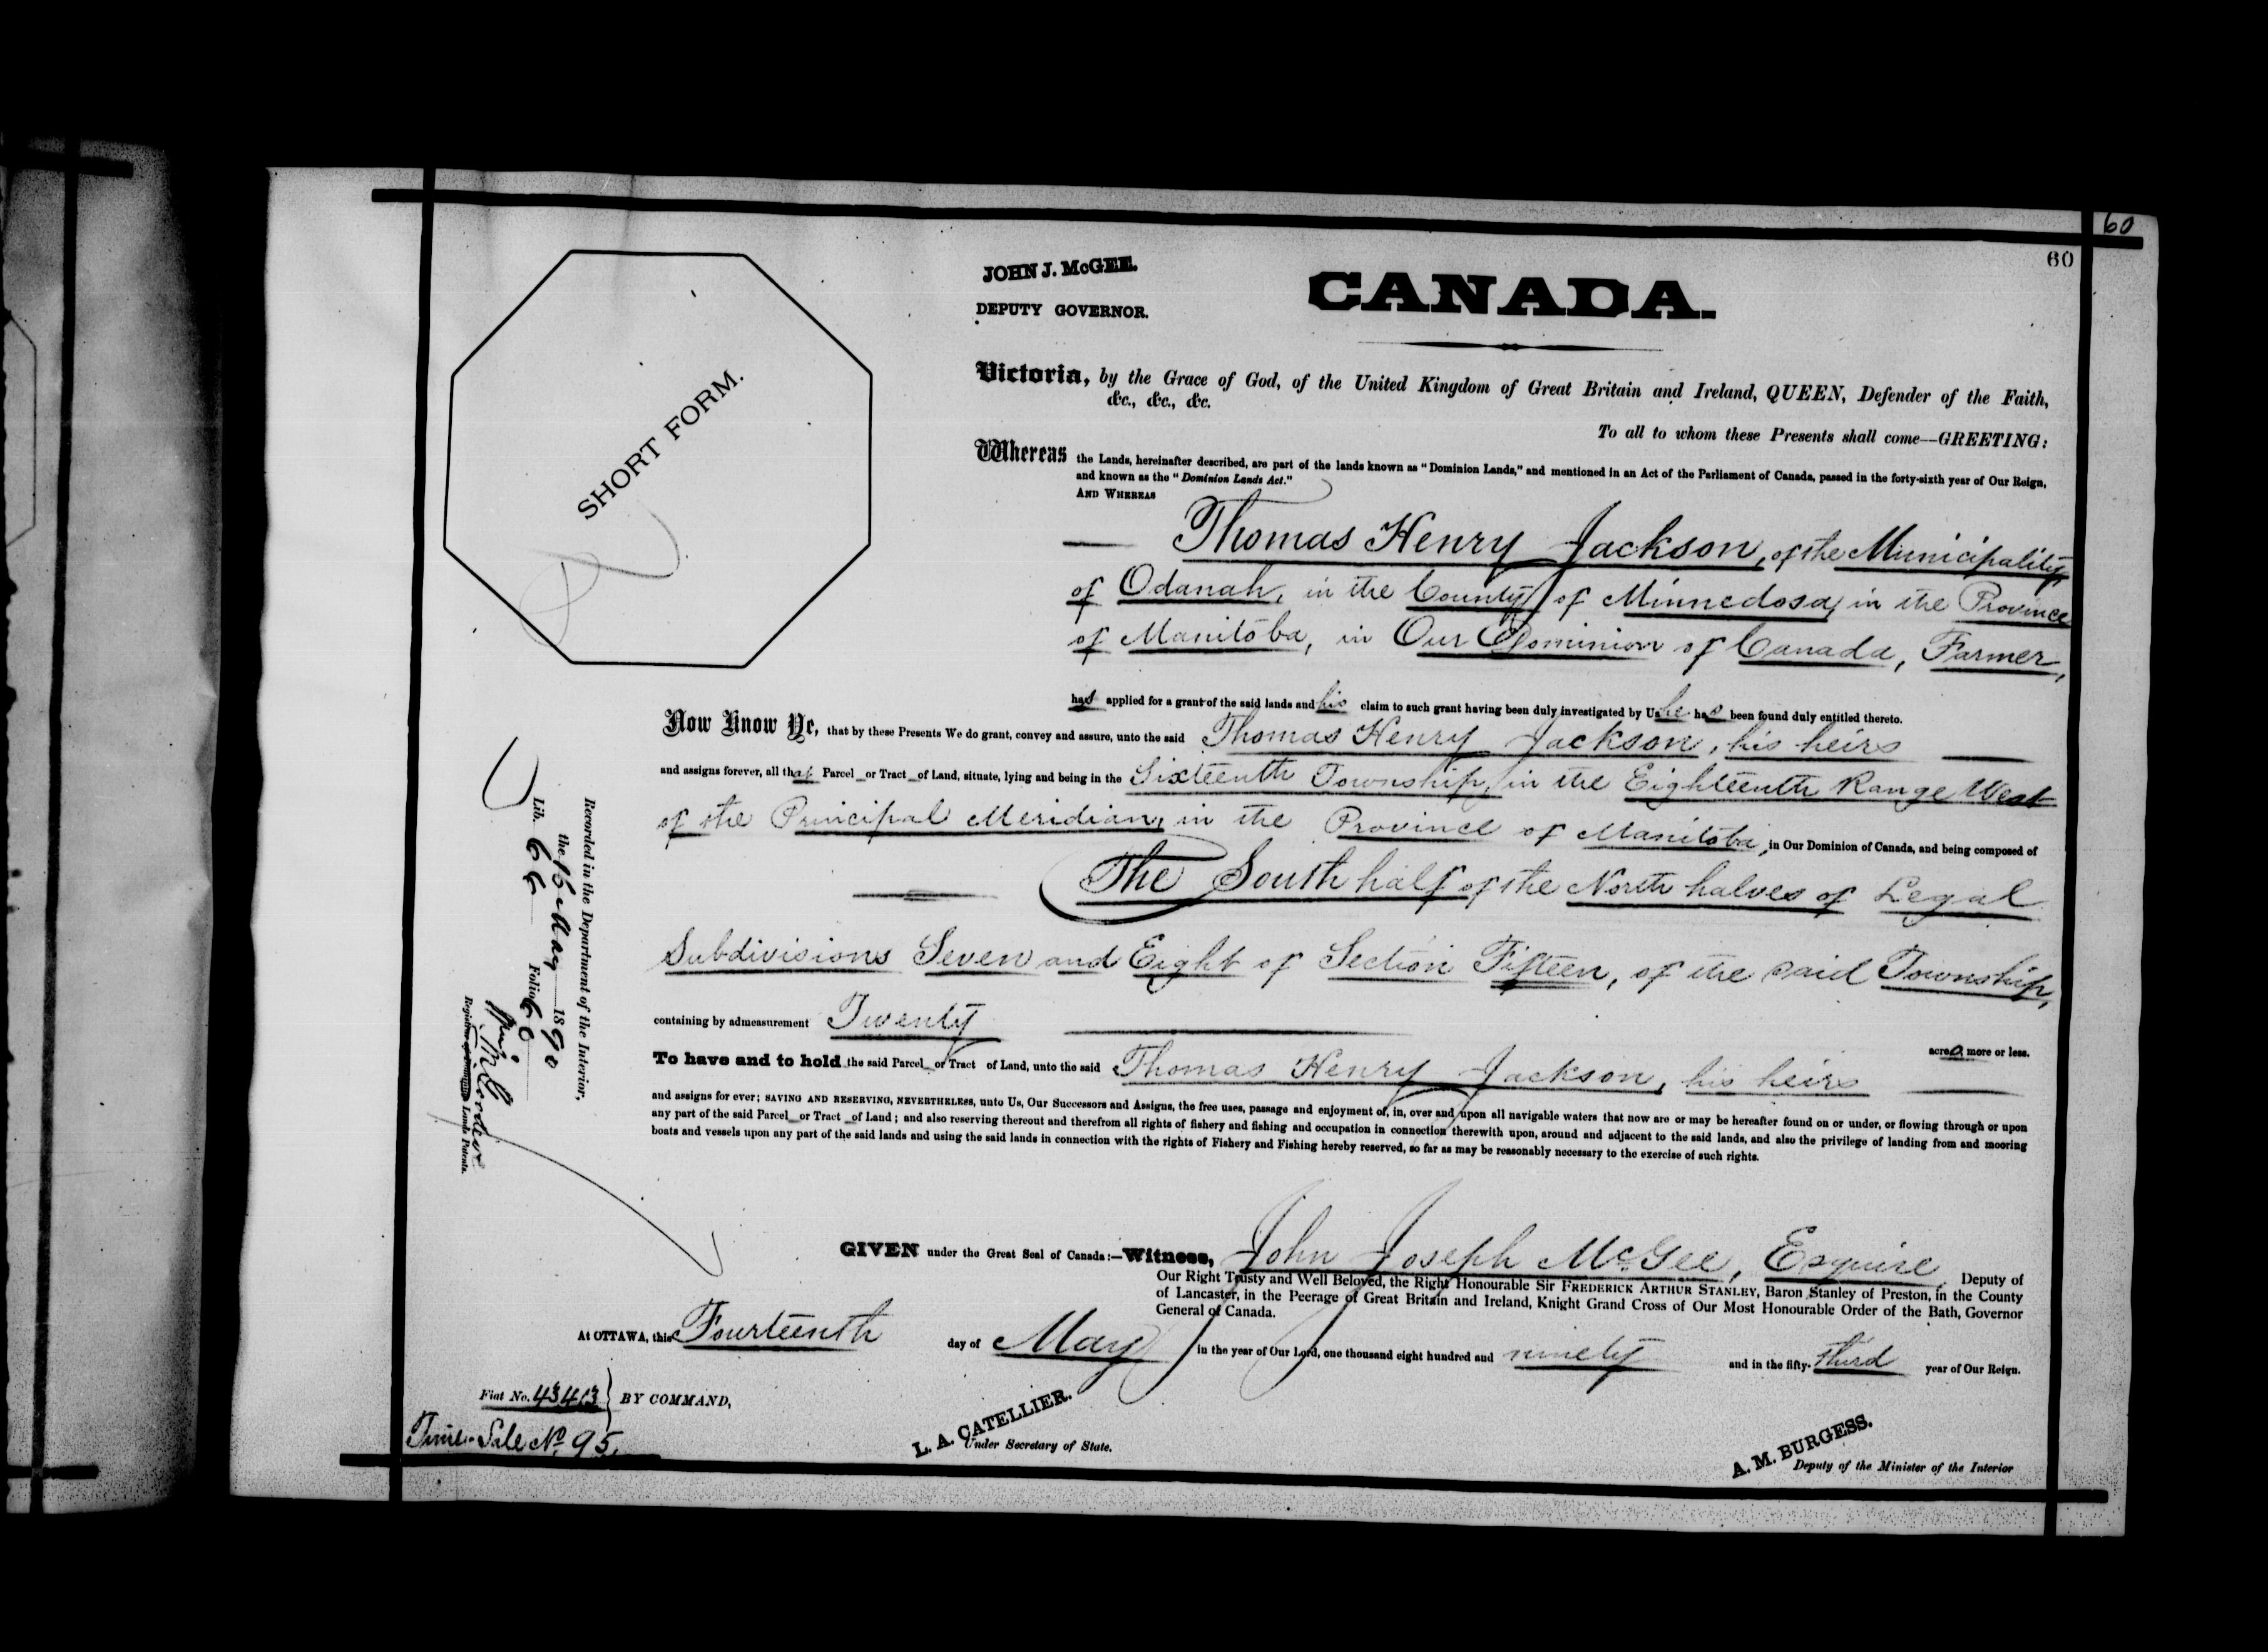 60
60
JOHN J. McGEE.
DEPUTY GOVERNOR.
CANADA.
SHORT FORM.
Victoria, by the Grace of God, of the United Kingdom of Great Britain and Ireland, QUEEN, Defender of the Faith,
&c., &c., &c.
To all to whom these Presents shall come—GREETING:
Whereas the Lands, hereinafter described, are part of the lands known as "Dominion Lands," and mentioned in an Act of the Parliament of Canada, passed in the forty-sixth year of Our Reign,
and known as the "Dominion Lands Act."
AND WHEREAS
Thomas Henry Jackson, of the Municipality
of Odanah, in the County of Minnedosa, in the Province
of Manitoba, in Our Dominion of Canada, Farmer,
has applied for a grant of the said lands and his claim to such grant having been duly investigated by Us he has been found duly entitled thereto.
Now Know Ye, that by these Presents We do grant, convey and assure, unto the said Thomas Henry Jackson, his heirs
and assigns forever, all that Parcel or Tract of Land, situate, lying and being in the Sixteenth Township, in the Eighteenth Range West
of the Principal Meridian, in the Province of Manitoba, in Our Dominion of Canada, and being composed of
The South half of the North halves of Legal
Subdivisions Seven and Eight of Section Fifteen, of the said Township,
containing by admeasurement Twenty
acres, more or less.
To have and to hold the said Parcel or Tract of Land, unto the said Thomas Henry Jackson, his heirs
and assigns for ever; SAVING AND RESERVING, NEVERTHELESS, unto Us, Our Successors and Assigns, the free uses, passage and enjoyment of, in, over and upon all navigable waters that now are or may be hereafter found on or under, or flowing through or upon
any part of the said Parcel or Tract of Land; and also reserving thereout and therefrom all rights of fishery and fishing and occupation in connection therewith upon, around and adjacent to the said lands, and also the privilege of landing from and mooring
boats and vessels upon any part of the said lands and using the said lands in connection with the rights of Fishery and Fishing hereby reserved, so far as may be reasonably necessary to the exercise of such rights.
Recorded in the Department of the Interior,
the 16 May 1890
Lib. 66 Folio 60
Lands Patents.
GIVEN under the Great Seal of Canada:—Witness, John Joseph McGee, Esquire, Deputy of
Our Right Trusty and Well Beloved, the Right Honourable Sir FREDERICK ARTHUR STANLEY, Baron Stanley of Preston, in the County
of Lancaster, in the Peerage of Great Britain and Ireland, Knight Grand Cross of Our Most Honourable Order of the Bath, Governor
General of Canada.
At OTTAWA, this Fourteenth day of May in the year of Our Lord, one thousand eight hundred and ninety and in the fifty-third year of Our Reign.
Fiat No. 43413 } BY COMMAND,
Time Sale No. 95
L. A. CATELLIER.
Under Secretary of State.
A. M. BURGESS.
Deputy of the Minister of the Interior